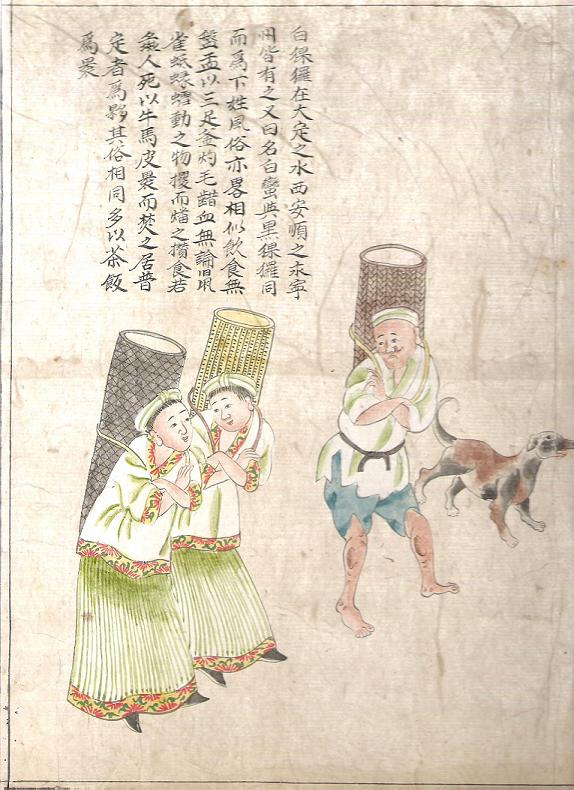 白猓玀在大定之水西安順之永寧
州皆有之又曰名白蠻與黑猓玀同
而爲下姓風俗亦畧相似飲食無
盤盂以三足釜灼毛齰血無論鼠
雀蚳蝝蠕動之物攫而燔之攢食若
彘人死以牛馬皮裹而焚之居普
定者爲夥其俗相同多以茶飯
爲業